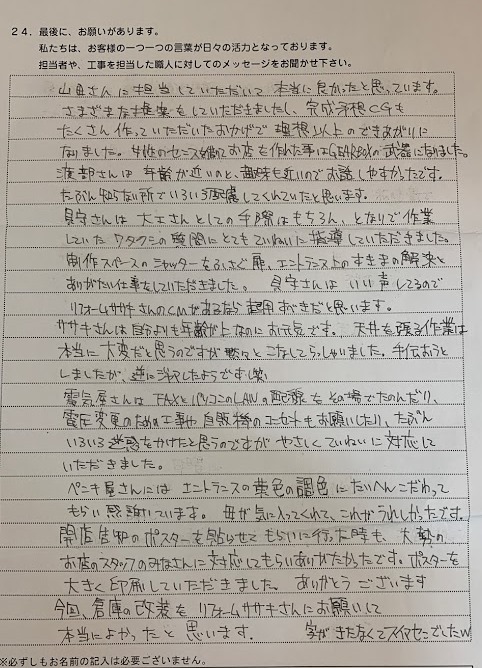 24．最後に、お願いがあります。
私たちは、お客様の一つ一つの言葉が日々の活力となっております。
担当者や、工事を担当した職人に対してのメッセージをお聞かせ下さい。
さんに担当していただいて本当に良かったと思っています。
さまざまな提案をしていただきましたし、完成予想CGも
たくさん作っていただいたおかげで理想以上のできあがりに
なりました。女性のセンスを纏ったお店を作れた事はGEARBOXの武器になりました。
渡部さんは年齢が近いのと、趣味も近いのでお話しやすかったです。
たぶん知らない所でいろいろ配慮してくれていたと思います。
貝守さんは大工さんとしての手際はもちろん、となりで作業
していたワタクシの質問にとてもていねいに指導していただきました。
制作スペースのシャッターをふさぐ扉、エントランス上のすきまの解決と
ありがたい仕事をしていただきました。貝守さんはいい声してるので
リフォームササキさんのCMがあるなら起用すべきだと思います。
ササキさんは自分よりも年齢が上なのにお元気です。天井を張る作業は
本当に大変だと思うのですが黙々とこなしてらっしゃいました。手伝おうと
しましたが、逆に邪したようです(笑
電気屋さんはFAXとパソコンのLANの配線をその場でたのんだり、
電圧変更のための工事や自販機のコンセントもお願いしたり、たぶん
いろいろ迷惑をかけたと思うのですがやさしくていねいに対応して
いただきました。
ペンキ屋さんにはエントランスの黄色の調色にたいへんこだわって
もらい感謝しています。母が気に入ってくれて、これがうれしかったです。
開店告知のポスターを貼らせてもらいに行った時も、大勢の
お店のスタッフのみなさんに対応してもらいありがたかったです。ポスターを
大きく印刷していただきました。ありがとうございます
今回、倉庫の改装をリフォームササキさんにお願いして
本当によかったと思います。 字がきたなくてスイマセンでしたw
※必ずしもお名前の記入は必要ございません。